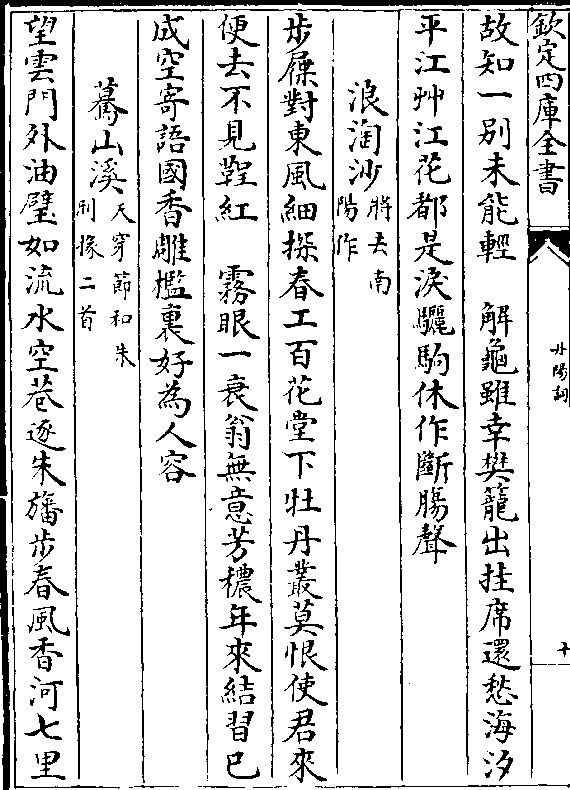 欽定四庫全書
丹陽詞
十
故知一别未能輕　解龜雖幸樊籠出挂席還愁海汐
平江艸江花都是淚驪駒休作斷腸聲
浪淘沙將去南陽作
步屧對東風細探春工百花堂下牡丹叢莫恨使君來
便去不見鞓紅　霧眼一衰翁無意芳穠年來結習已
成空寄語國香雕檻裏好為人容
驀山溪天穿節和朱刑掾二首
望雲門外油壁如流水空巷逐朱旛步春風香河七里